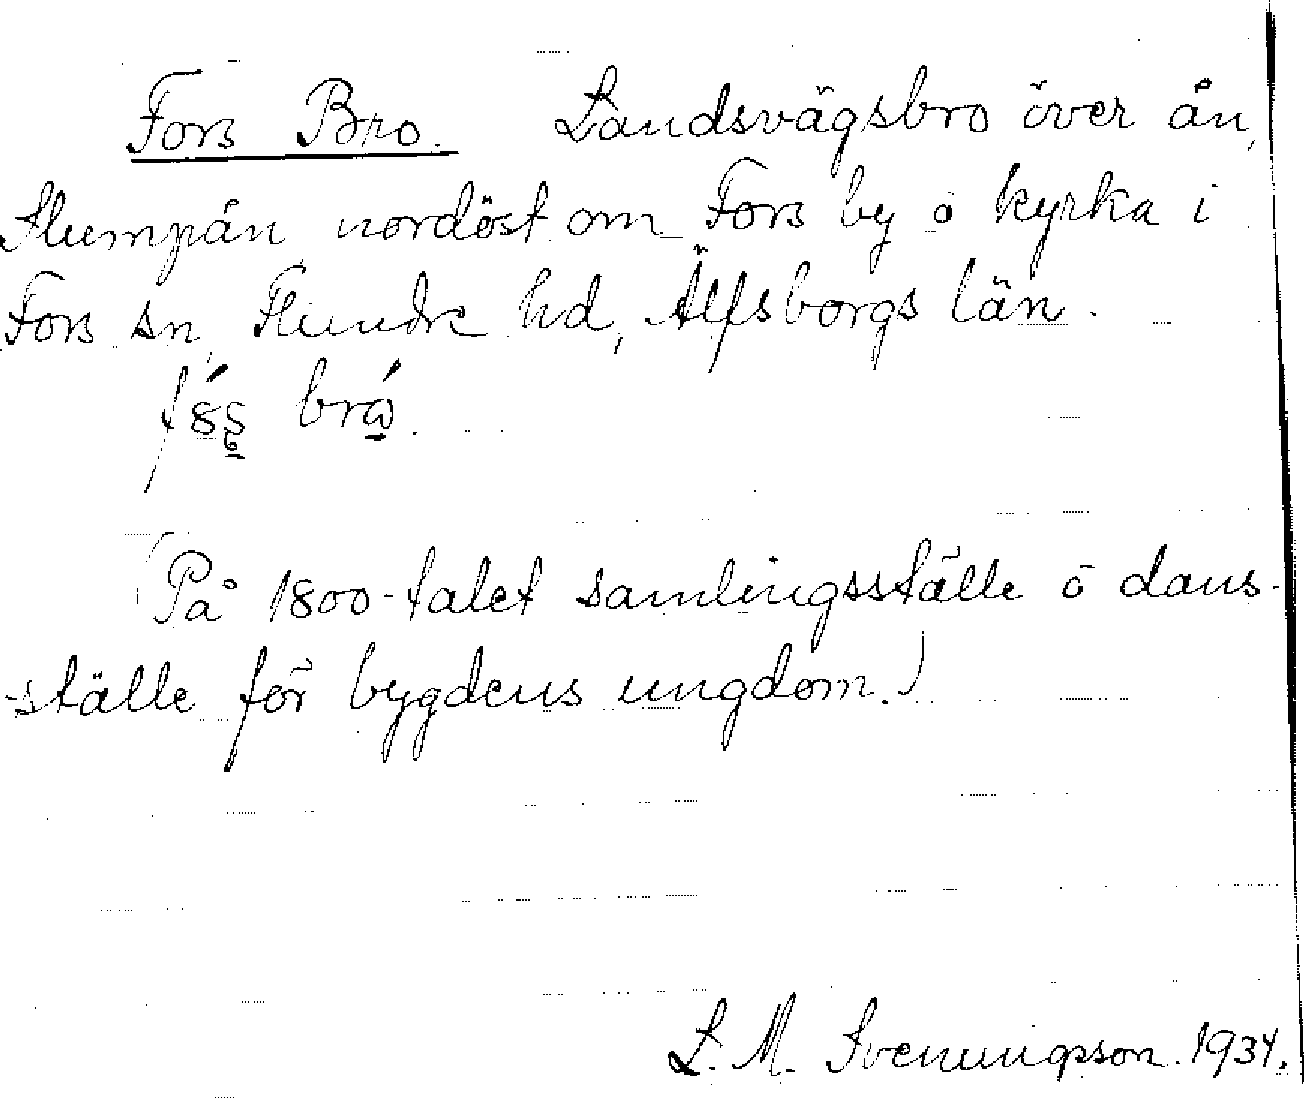 Fors Bro. Landsvägsbro över ån,
Slumpån nordöst om Fors by o kyrka i
Fors sn, Flundre hd, Älfsborgs län.
(På 1800-talet samlingsställe o dans-
-ställe för bygdens ungdom.)
L. M. Svenungsson. 1934.